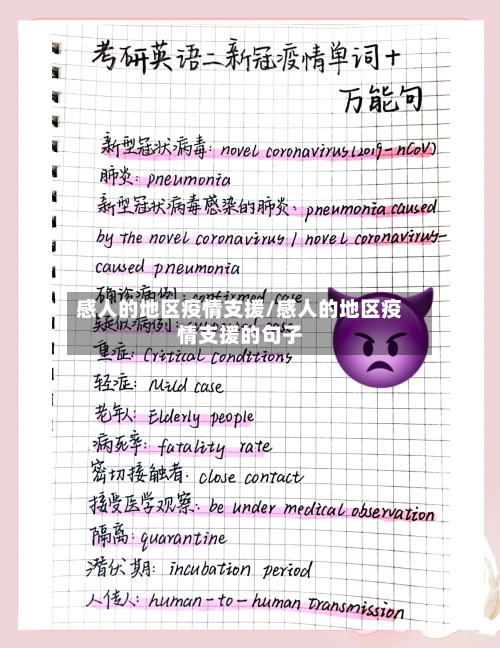 考研英语二新冠疫情单词+
万能句
新型冠状病毒: novel coronavirus(2019-nCoV)
肺炎: pneumonia
新型冠状病毒感染的肺炎: pneumonia caused
by the novel coronavirus / novel coronavirus-
caused pneumonia
确诊病例: confirmed case
感人的地区疫情支援/感人的地区疫
疑似病例:
情支援的句子
重症: Critical conditions
轻症: Mild case
老年人: Elderly people
病死率: fatality rate
密切接触者: close contact
接受医学观察: be under medical observation
隔离: quarantine
潜伏期: incubation period
人传人: human-to-human transmission